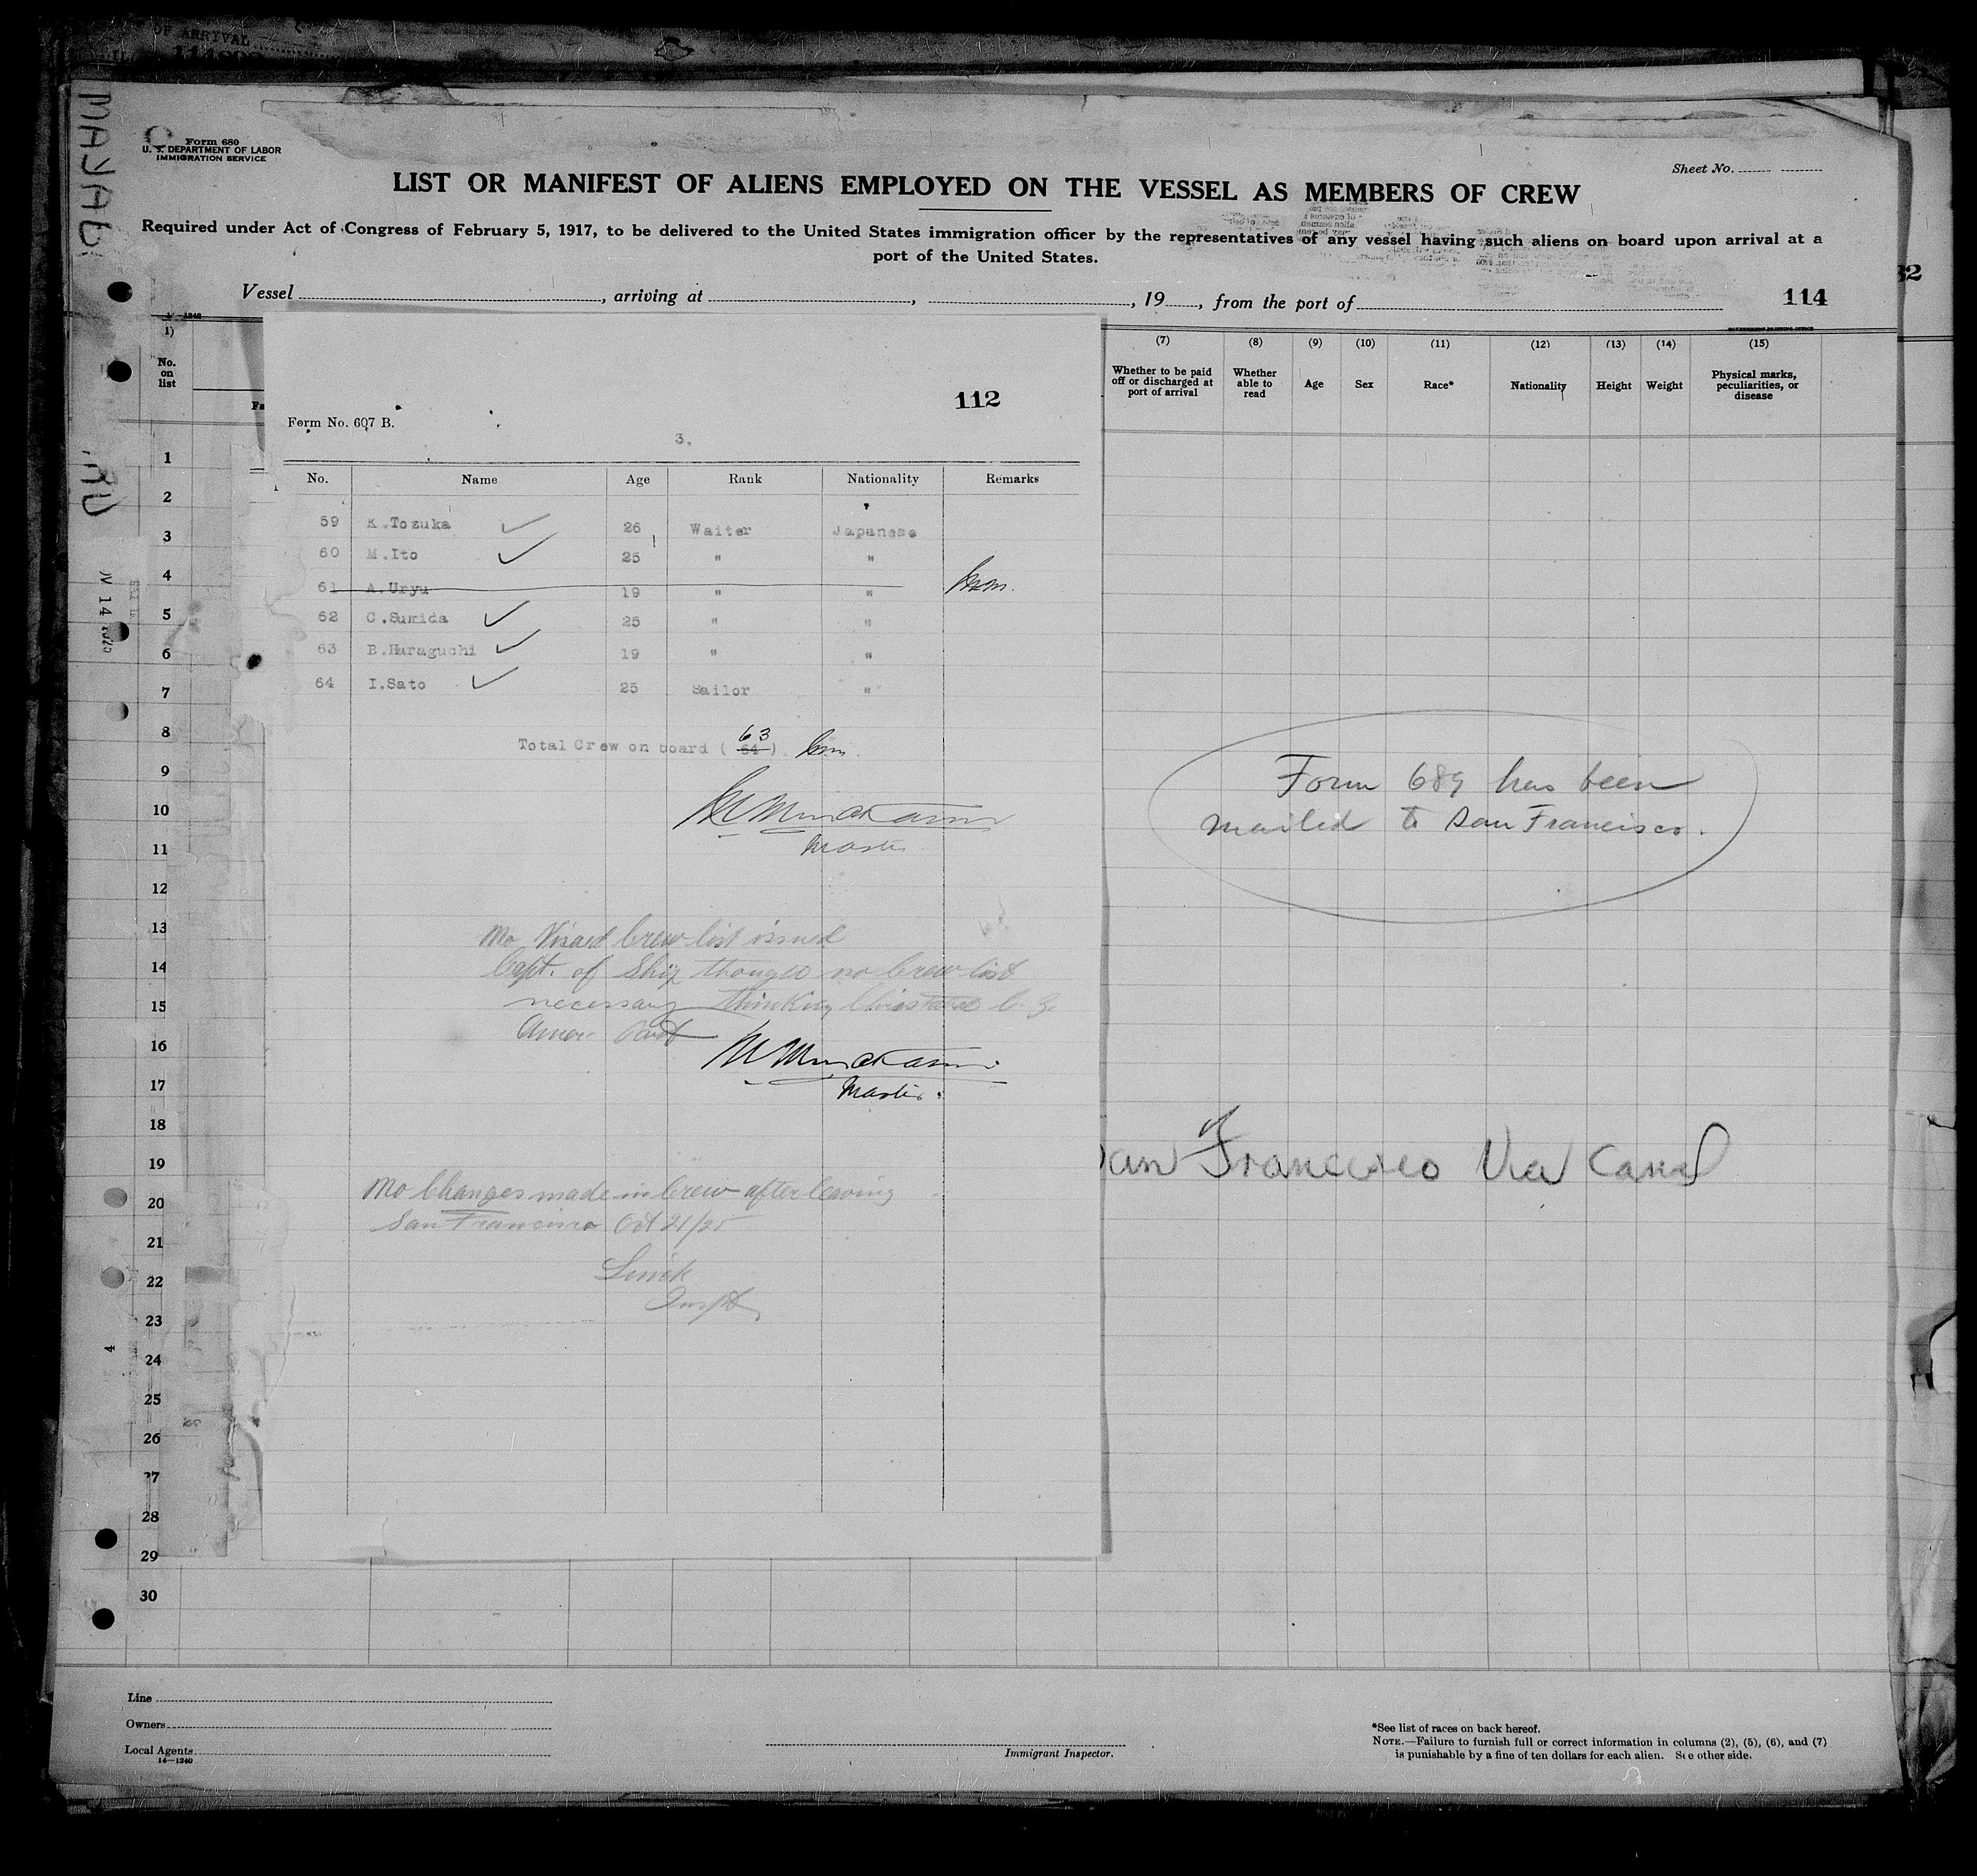 OF ARRIVAL
Form 680
U. S. DEPARTMENT OF LABOR
IMMIGRATION SERVICE
Sheet No.
LIST OR MANIFEST OF ALIENS EMPLOYED ON THE VESSEL AS MEMBERS OF CREW
Required under Act of Congress of February 5, 1917, to be delivered to the United States immigration officer by the representatives of any vessel having such aliens on board upon arrival at a
port of the United States.
Vessel , arriving at , , 19 , from the port of
114
No. on list
(7) Whether to be paid off or discharged at port of arrival
(8) Whether able to read
(9) Age
(10) Sex
(11) Race*
(12) Nationality
(13) Height
(14) Weight
(15) Physical marks, peculiarities, or disease
112
Form No. 607 B.
3.
No. Name Age Rank Nationality Remarks
59 K.Tozuka 26 Waiter Japanese
60 M.Ito 25 " "
61 A.Uryu 19 " "
62 C.Sumida 25 " "
63 B.Haraguchi 19 " "
64 I.Sato 25 Sailor "
Total Crew on board ( 64 ) 63
Master
No Visaed Crew list issued
Capt. of Ship thought no Crew list
necessary thinking
Amer. Port
Master.
No Changes made in Crew after leaving
San Francisco Oct 21/25
Form 689 has been
mailed to San Francisco.
San Francisco Via Canal
1
2
3
4
5
6
7
8
9
10
11
12
13
14
15
16
17
18
19
20
21
22
23
24
25
26
27
28
29
30
Line
Owners
Local Agents
14—1240
Immigrant Inspector.
*See list of races on back hereof.
NOTE.—Failure to furnish full or correct information in columns (2), (5), (6), and (7)
is punishable by a fine of ten dollars for each alien. See other side.